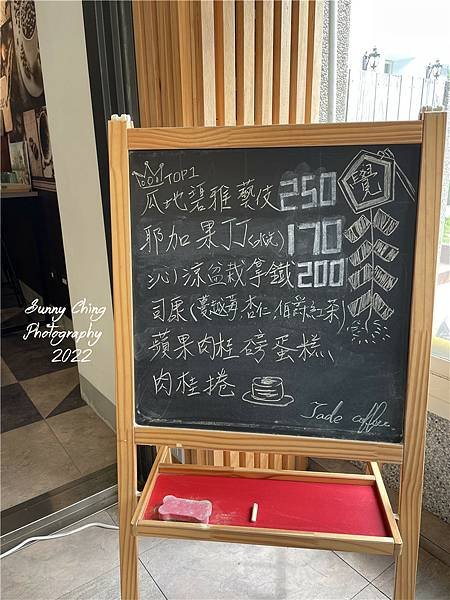 TOP1
瓜地碧雅藝伎250
耶加果丁丁(水洗)170
沁涼盆栽拿鐵200
司康(蔓越莓,杏仁,伯爵紅茶)
蘋果肉桂磅蛋糕
肉桂捲
Jade coffee
Sunny Ching
Photography
2022